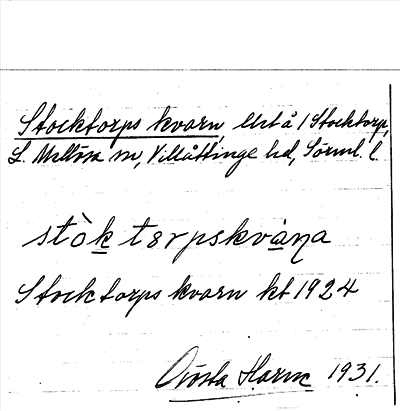 Stocktorps kvarn, utst å / Stocktorp,
L. Mellösa sn, Villåttinge hd, Sörml. l.
stòk tɞrpskvàṇa
Stocktorps kvarn kt 1924
Gösta Harne 1931.